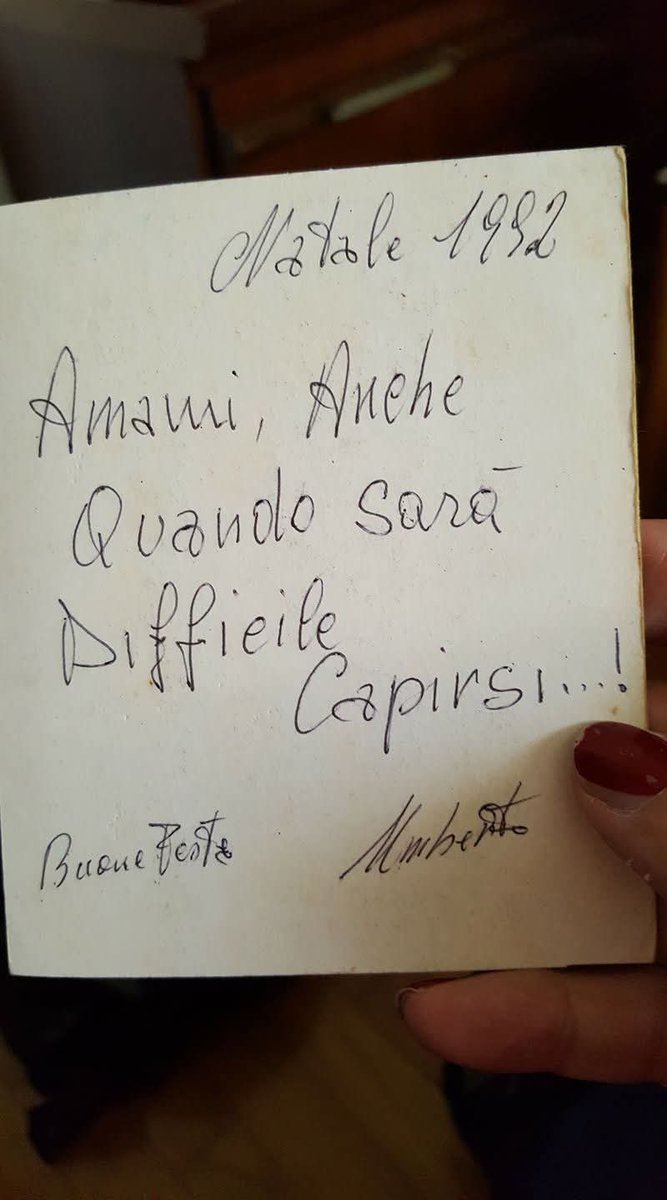 Natale 1992
Amami, Anche
Quando sarā
Difficile
Capirsi...!
Buone Feste
Umberto